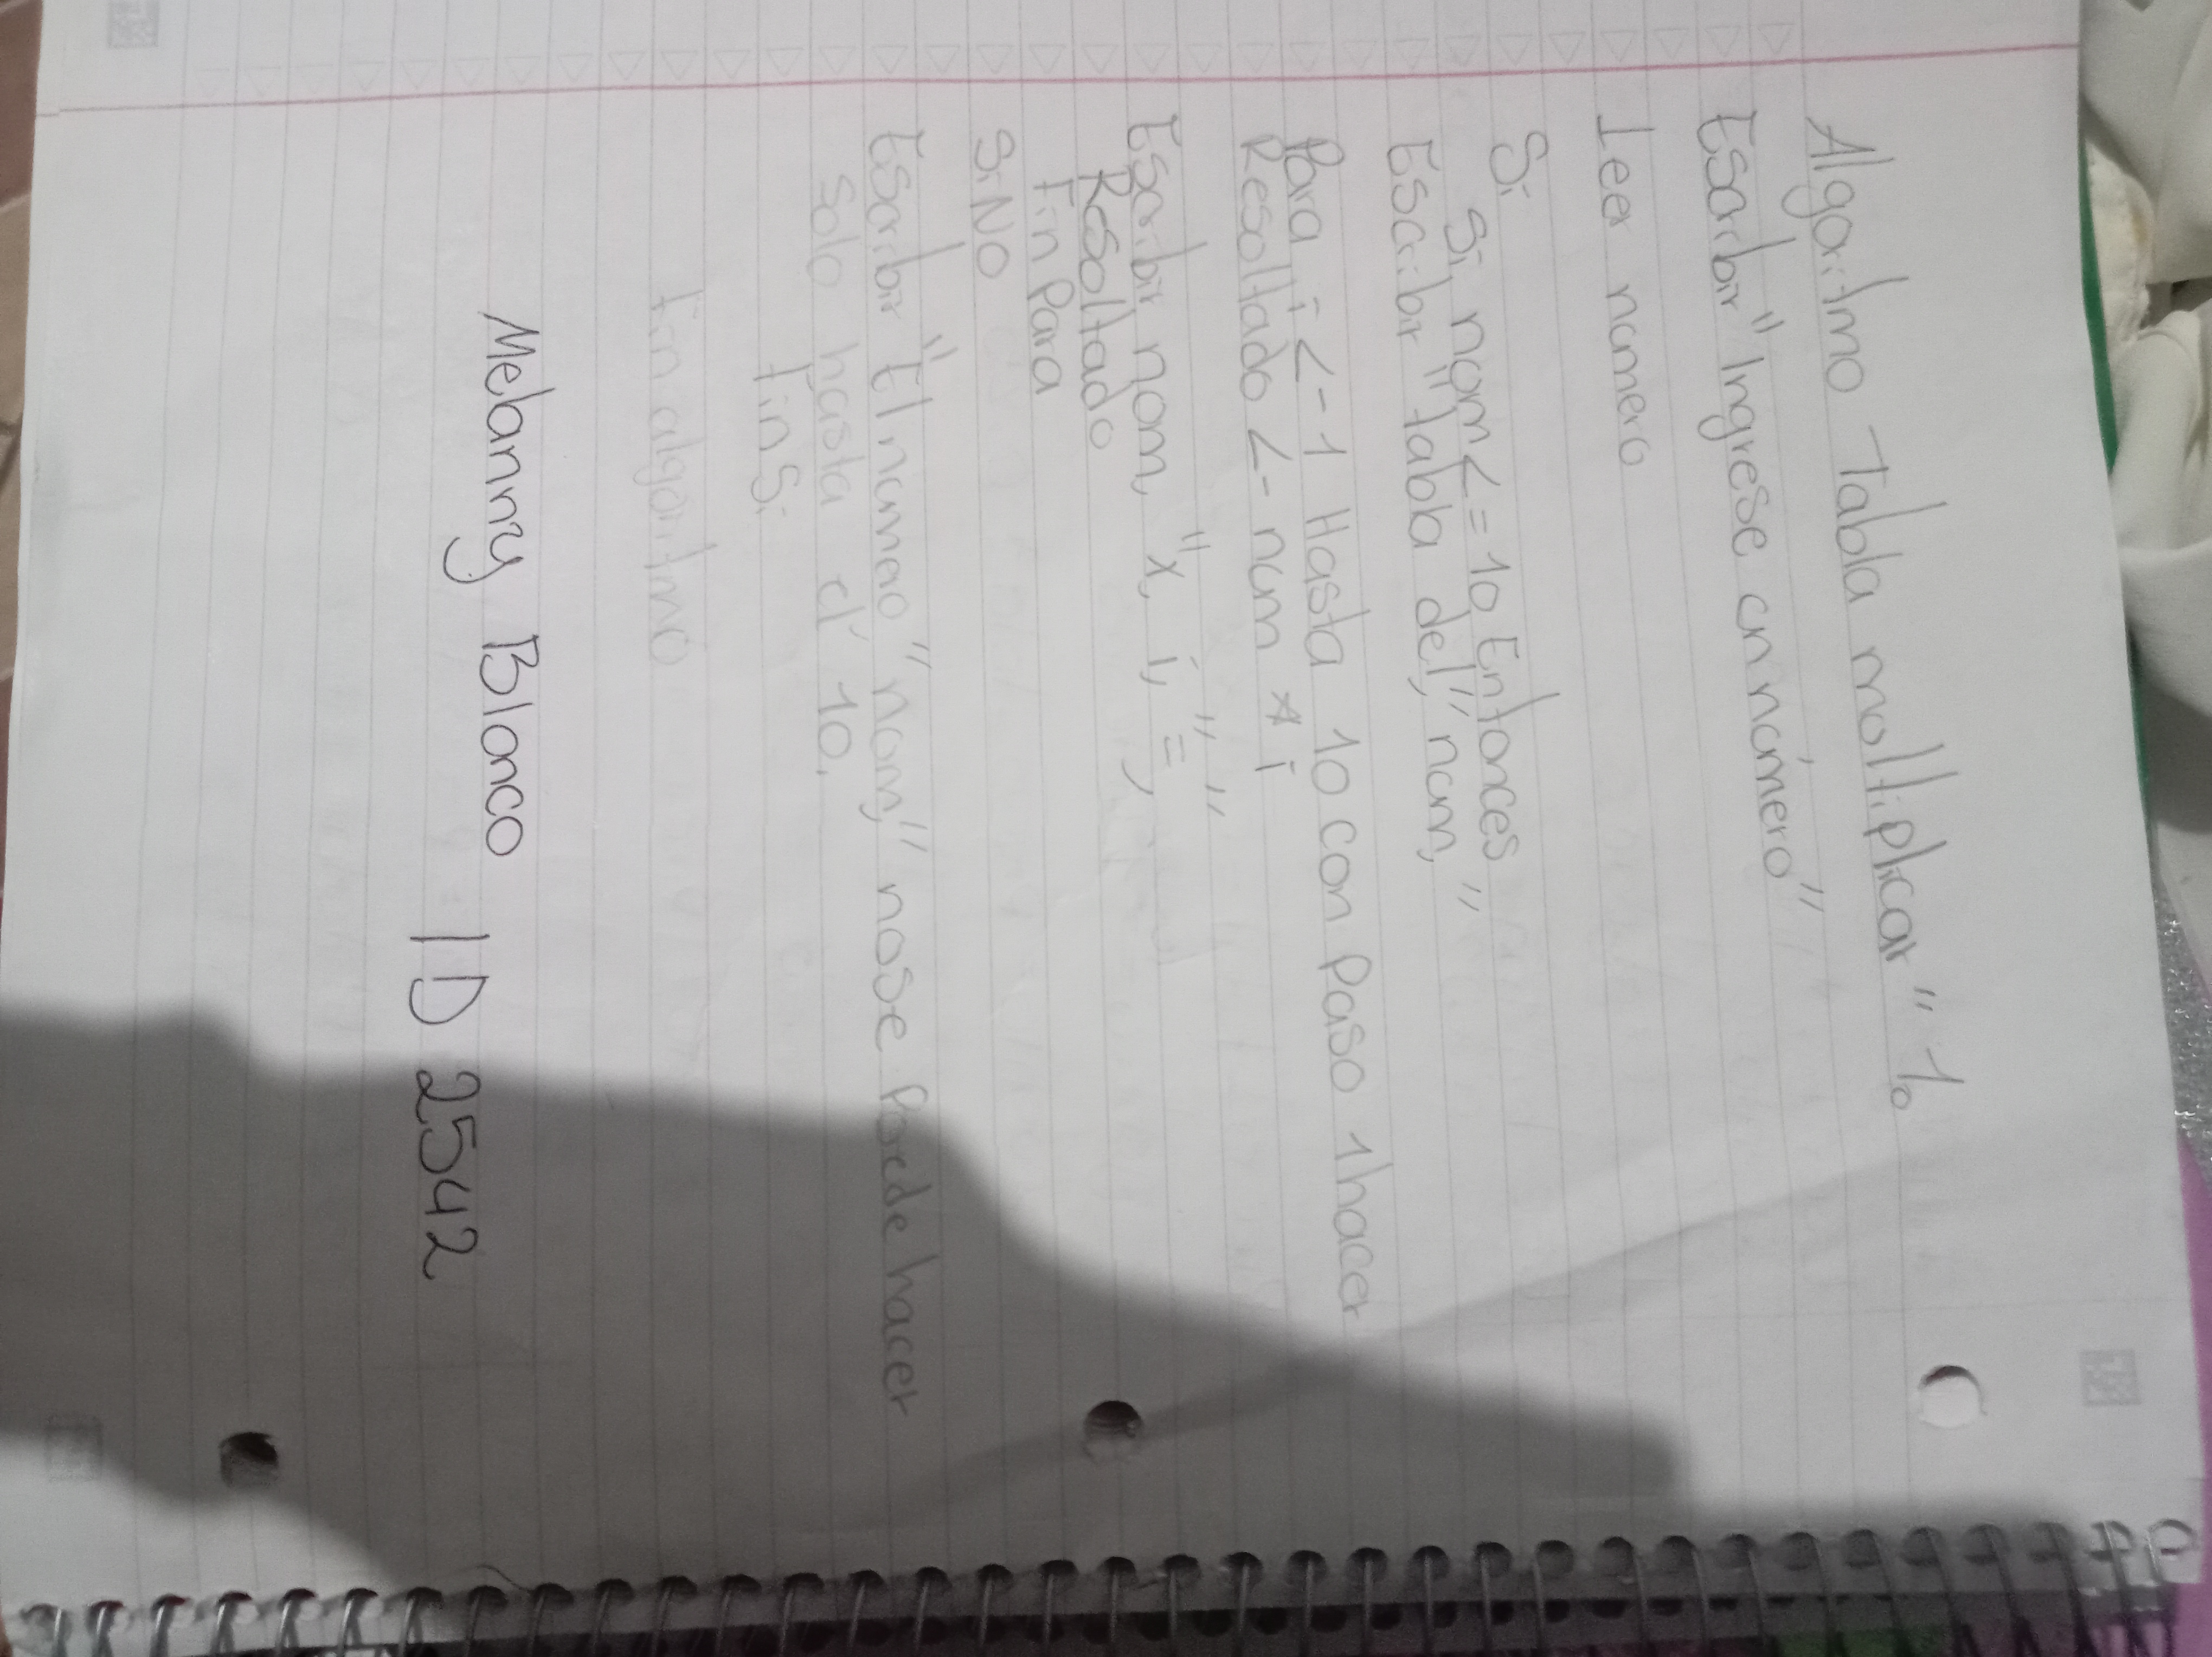 Algoritmo Tabla moltiplicar" 1o
Escribir "Ingrese un número"
Leer numero
Si
Si num <= 10 Entonces
Escribir "Tabla del," num, "
Para i <- 1 Hasta 10 con Paso 1 hacer
Resoltado <- num * i
Escribir nom, "x, i, " = , "
Resoltado
Fin Para
SiNO
Escribir "El numero" nom," no se Puede hacer
solo hasta el 10.
Fin Si
Fin algoritmo
Mebanny Blonco ID 2542